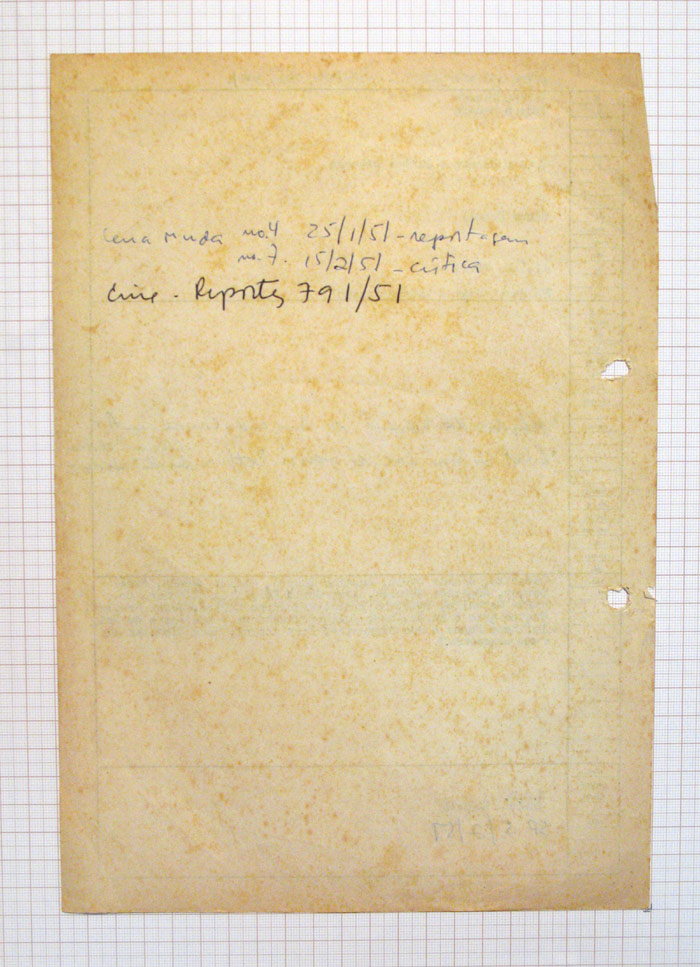 Cena Muda no.4 25/1/51 - reportagem
no. 7. 15/2/51 - crítica
Cine - Reporter 791/51